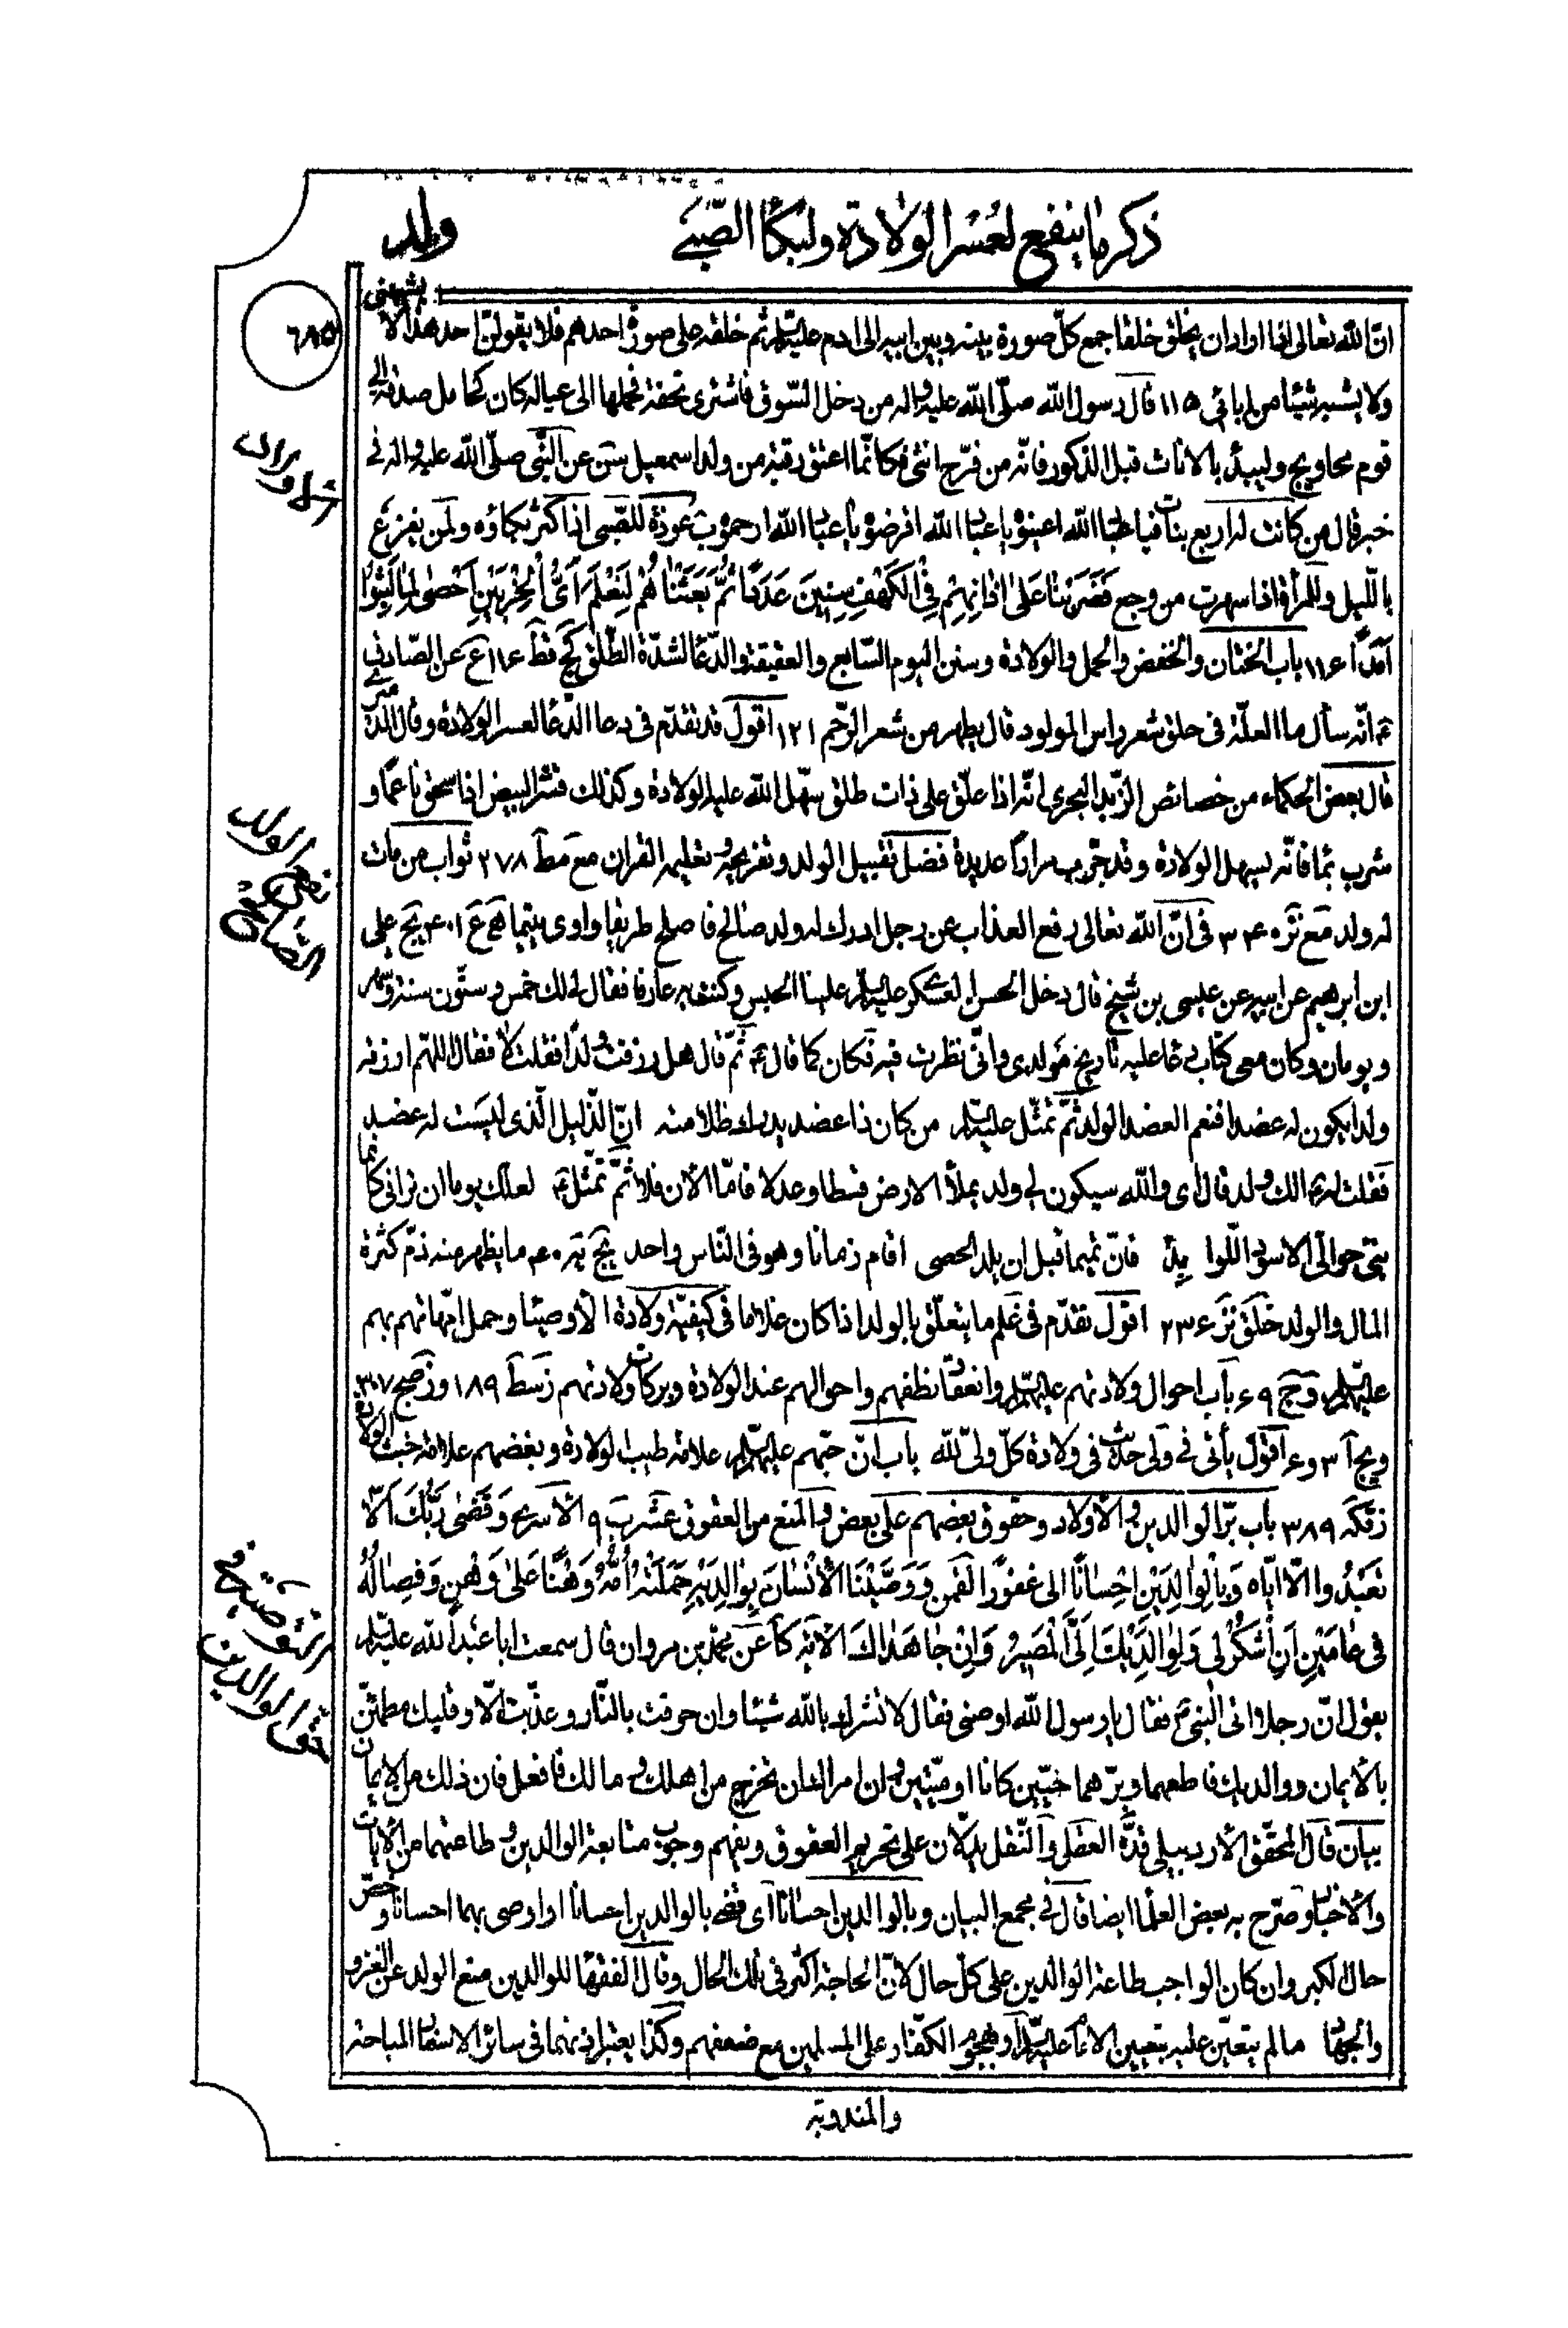 ذكر ما ينفع لعسر الولادة ولبكاء الصّبي
ولد
٦٨٥
انّ الله تعالى اذا اراد ان يخلق خلقا جمع كلّ صورة بينه وبين ابيه الى ادم عليه السلام ثم خلقه على صورة احدهم فلا يقولنّ احد هذا لا يشبهني
ولا يشبه شيئا من ابائي ١١٥ قال رسول الله صلّى الله عليه واله من دخل السّوق فاشترى تحفة فحملها الى عياله كان كحامل صدقة الى
قوم محاويج وليبدأ بالاناث قبل الذكور فانّه من فرّح انثى فكانّما اعتق رقبة من ولد اسمعيل عن النّبي صلّى الله عليه واله في
خبر قال من كانت له اربع بنات فيا عباد الله اعينوه يا عباد الله اقرضوه يا عباد الله ارحموه عوذة للصّبي اذا كثر بكاؤه ولمن يفزع
بالليل وللمرأة اذا سهرت من وجع فَضَرَبْنا عَلىٰ اذانِهِمْ فِي الكَهْفِ سِنِينَ عَدَدًا ثُمَّ بَعَثْناهُمْ لِنَعْلَمَ اَيُّ الحِزْبَيْنِ اَحْصىٰ لِما لَبِثُوا
اَمَدًا ١١٦ باب الختان والخفض والحمل والولادة وسنن اليوم السّابع والعقيقة والدّعاء لشدّة الطّلق كج قط ١١٦ ع عن الصّادق
ع انّه سأل ما العلّة في حلق شعر راس المولود قال يطهر من شعر الرّحم ١٢١ اقول قد تقدّم في دعا الدّعا لعسر الولادة وقال الدميري
قال بعض الحكماء من خصائص الزّبد البحري انّه اذا علّق على ذات طلق سهّل الله عليها الولادة وكذلك قشر البيض اذا سحق ناعما و
شرب بماء فانّه يسهل الولادة وقد جرّب مرارًا عديدة فضل تقبيل الولد وتفريحه وتعليمه القران مع مط ٢٧٨ ثواب من مات
له ولد مع نز ٣٤٠ في انّ الله تعالى رفع العذاب عن رجل ادرك له ولد صالح فاصلح طريقا واوى يتيما ٤٠١ يج علي
ابن ابرهيم عن ابيه عن عيسى بن شيخ قال دخل الحسن العسكري عليه السلام علينا الحبس وكنت به عارفا فقال لي لك خمس وستّون سنة وشهر
ويومان وكان معي كتاب دعا عليه تاريخ مولدي وانّي نظرت فيه فكان كما قال ع ثمّ قال هل رزقت ولدا فقلت لا فقال اللهم ارزقه
ولدا يكون له عضدا فنعم العضد الولد ثمّ تمثّل عليه السلام من كان ذا عضد يدرك ظلامته انّ الذّليل الّذي ليست له عضد
فقلت له الك ولد قال اى والله سيكون لي ولد يملأ الارض قسطا وعدلا فامّا الان فلا ثمّ تمثّل ع لعلّك يوما ان تراني كانما
بنيّ حوالَيّ الاسود اللّوابد فانّ تميما قبل ان يلد الحصى اقام زمانا وهو في النّاس واحد ما يظهر منه ذمّ كثرة
المال والولد خلق نز ٢٣٦ اقول تقدّم في غلم ما يتعلّق بالولد اذا كان غلاما في كيفيّة ولادة الاوصيا وحمل امّهاتهم بهم
عليهم السلام وج ٩ باب احوال ولادتهم عليهم السلام وانعقاد نطفهم واحوالهم عند الولادة وبركات ولادتهم ز سط ١٨٩ وز صج ٣٠٧
اقول يأتي في ولى حديث في ولادة كلّ ولىّ لله باب انّ حبّهم عليهم السلام علامة طيب الولادة وبغضهم علامة خبث الولادة
ز قكه ٣٨٩ باب برّ الوالدين والاولاد وحقوق بعضهم على بعض والمنع من العقوق عشر ب ٩ الاسرى وَقَضىٰ رَبُّكَ اَلّا
تَعْبُدُوا اِلّا ايّاه وَبِالْوالِدَيْنِ اِحْسانًا الى غفورًا لقمن وَوَصَّيْنَا الاِنْسانَ بِوالِدَيْهِ حَمَلَتْهُ اُمُّهُ وَهْنًا عَلىٰ وَهْنٍ وَفِصالُهُ
في عامَيْنِ اَنِ اشْكُرْ لي وَلِوالِدَيْكَ اِلَيَّ الْمَصِيرُ وَاِنْ جاهَداكَ الاية كا عن محمّد بن مروان قال سمعت ابا عبد الله عليه السلام
يقول انّ رجلا اتى النّبي فقال يا رسول الله اوصني فقال لا تشرك بالله شيئا وان حرقت بالنّار وعذّبت الّا وقلبك مطمئنّ
بالايمان ووالديك فاطعهما وبرّهما حيّين كانا او ميّتين وان امراك ان تخرج من اهلك ومالك فافعل فان ذلك من الايمان
بيان قال المحقّق الاردبيلي قدّه العقل والنّقل يدلّان على تحريم العقوق ويفهم وجوب متابعة الوالدين وطاعتهما من الايات
والاخبار وصرّح به بعض العلماء ايضا قال في مجمع البيان وبالوالدين احسانا اى قضى بالوالدين احسانا او اوصى بهما احسانا وخصّ
حال الكبر وان كان الواجب طاعة الوالدين على كلّ حال لانّ الحاجة اكثر في تلك الحال وقال الفقهاء للوالدين منع الولد عن الغزو
والجهاد ما لم يتعيّن عليه بتعيين الامام عليه السلام او بهجوم الكفّار على المسلمين مع ضعفهم وكذا يعتبر اذنهما في سائر الاسفار المباحة
والمندوبة